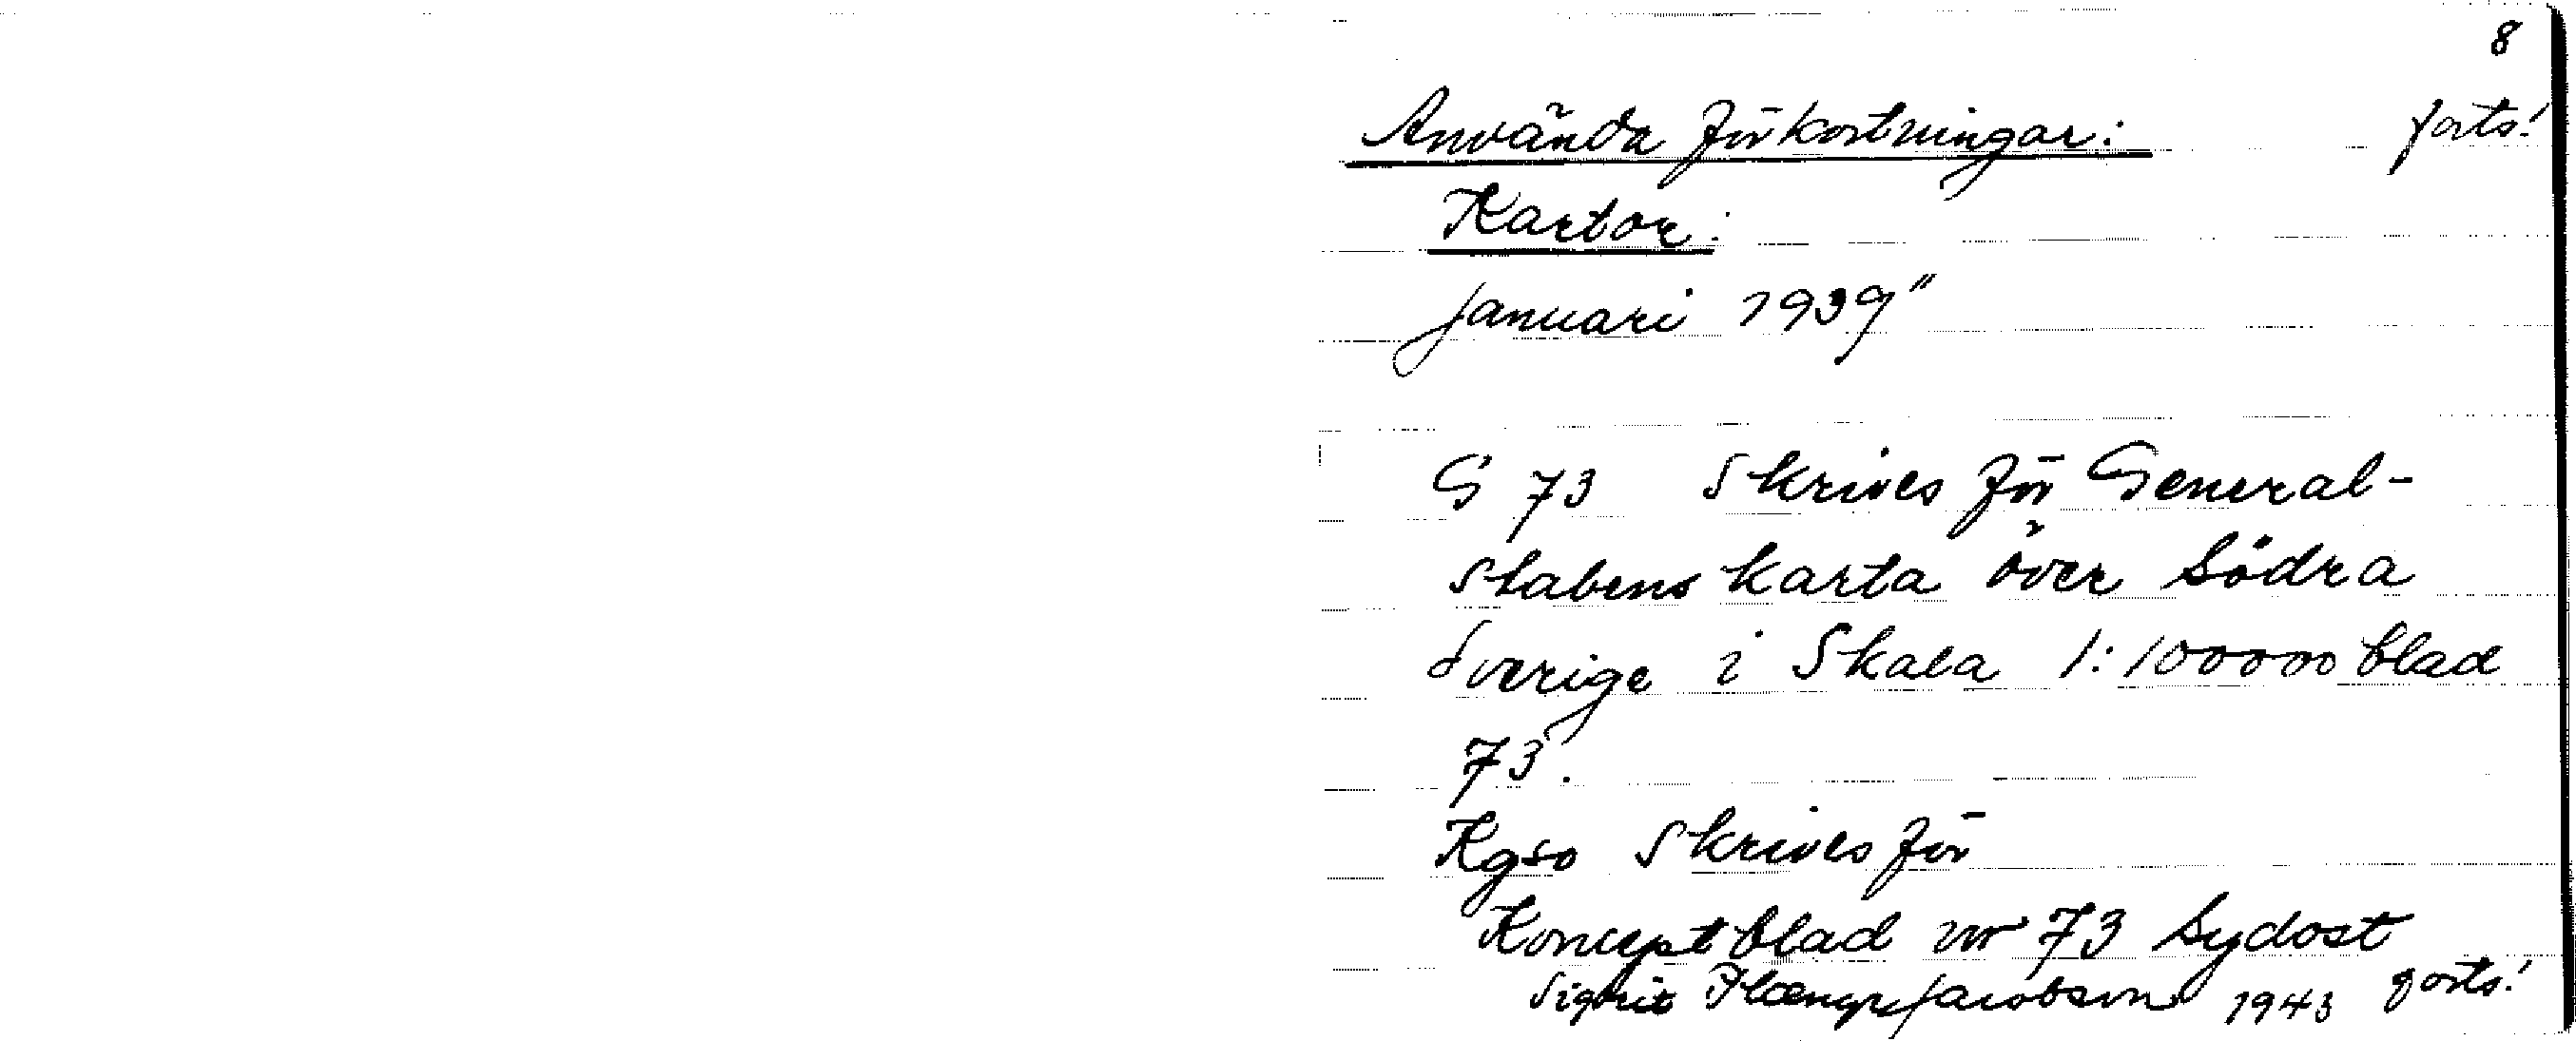 8
Använda förkortningar: forts!
Kartor:
januari 1939"
G 73 Skrives för General-
stabens karta över södra
Sverige i Skala 1:100000 blad
73.
Kgso Skrives för
Konceptblad nr 73 Sydost
Sigrid Jacobson 1943 forts!